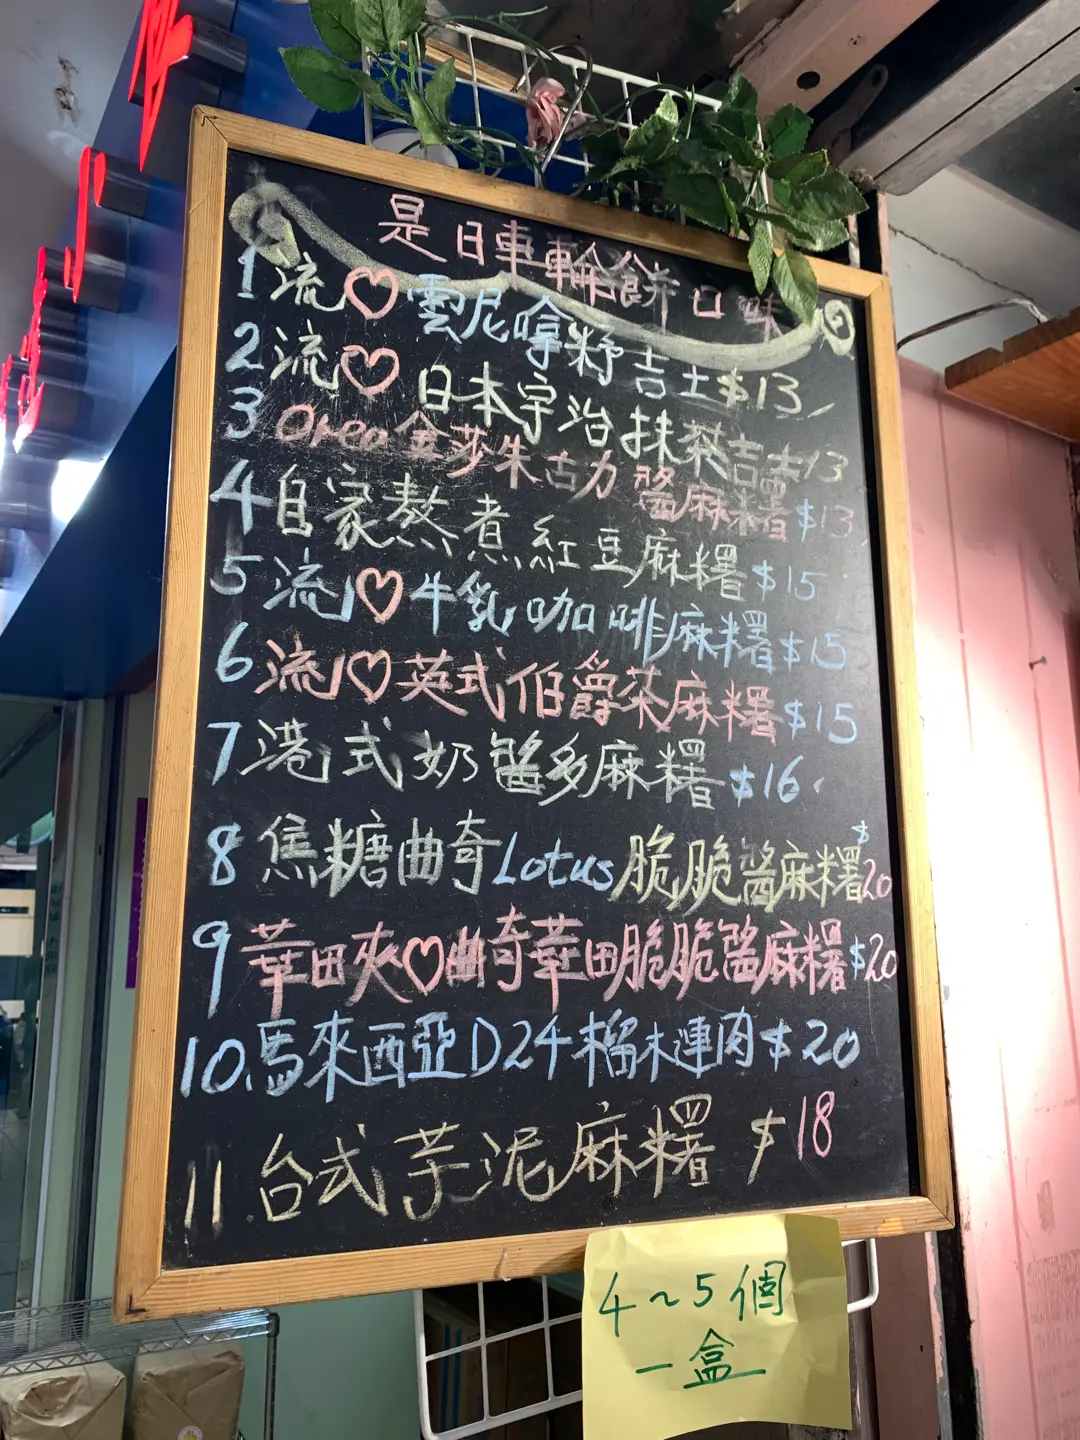 是日車輪餅口味
1 流♡雲尼嗱籽吉士$13
2 流♡日本宇治抹茶吉士13
3 Oreo金莎朱古力醬麻糬$13
4 自家熬煮紅豆麻糬$15
5 流心♡牛乳咖啡麻糬$15
6 流心♡英式伯爵茶麻糬$15
7 港式奶醬多麻糬$16
8 焦糖曲奇Lotus脆脆醬麻糬$20
9 華田夾♡曲奇華田脆脆醬麻糬$20
10.馬來西亞D24榴木連肉$20
11.台式芋泥麻糬 $18
4~5個
一盒